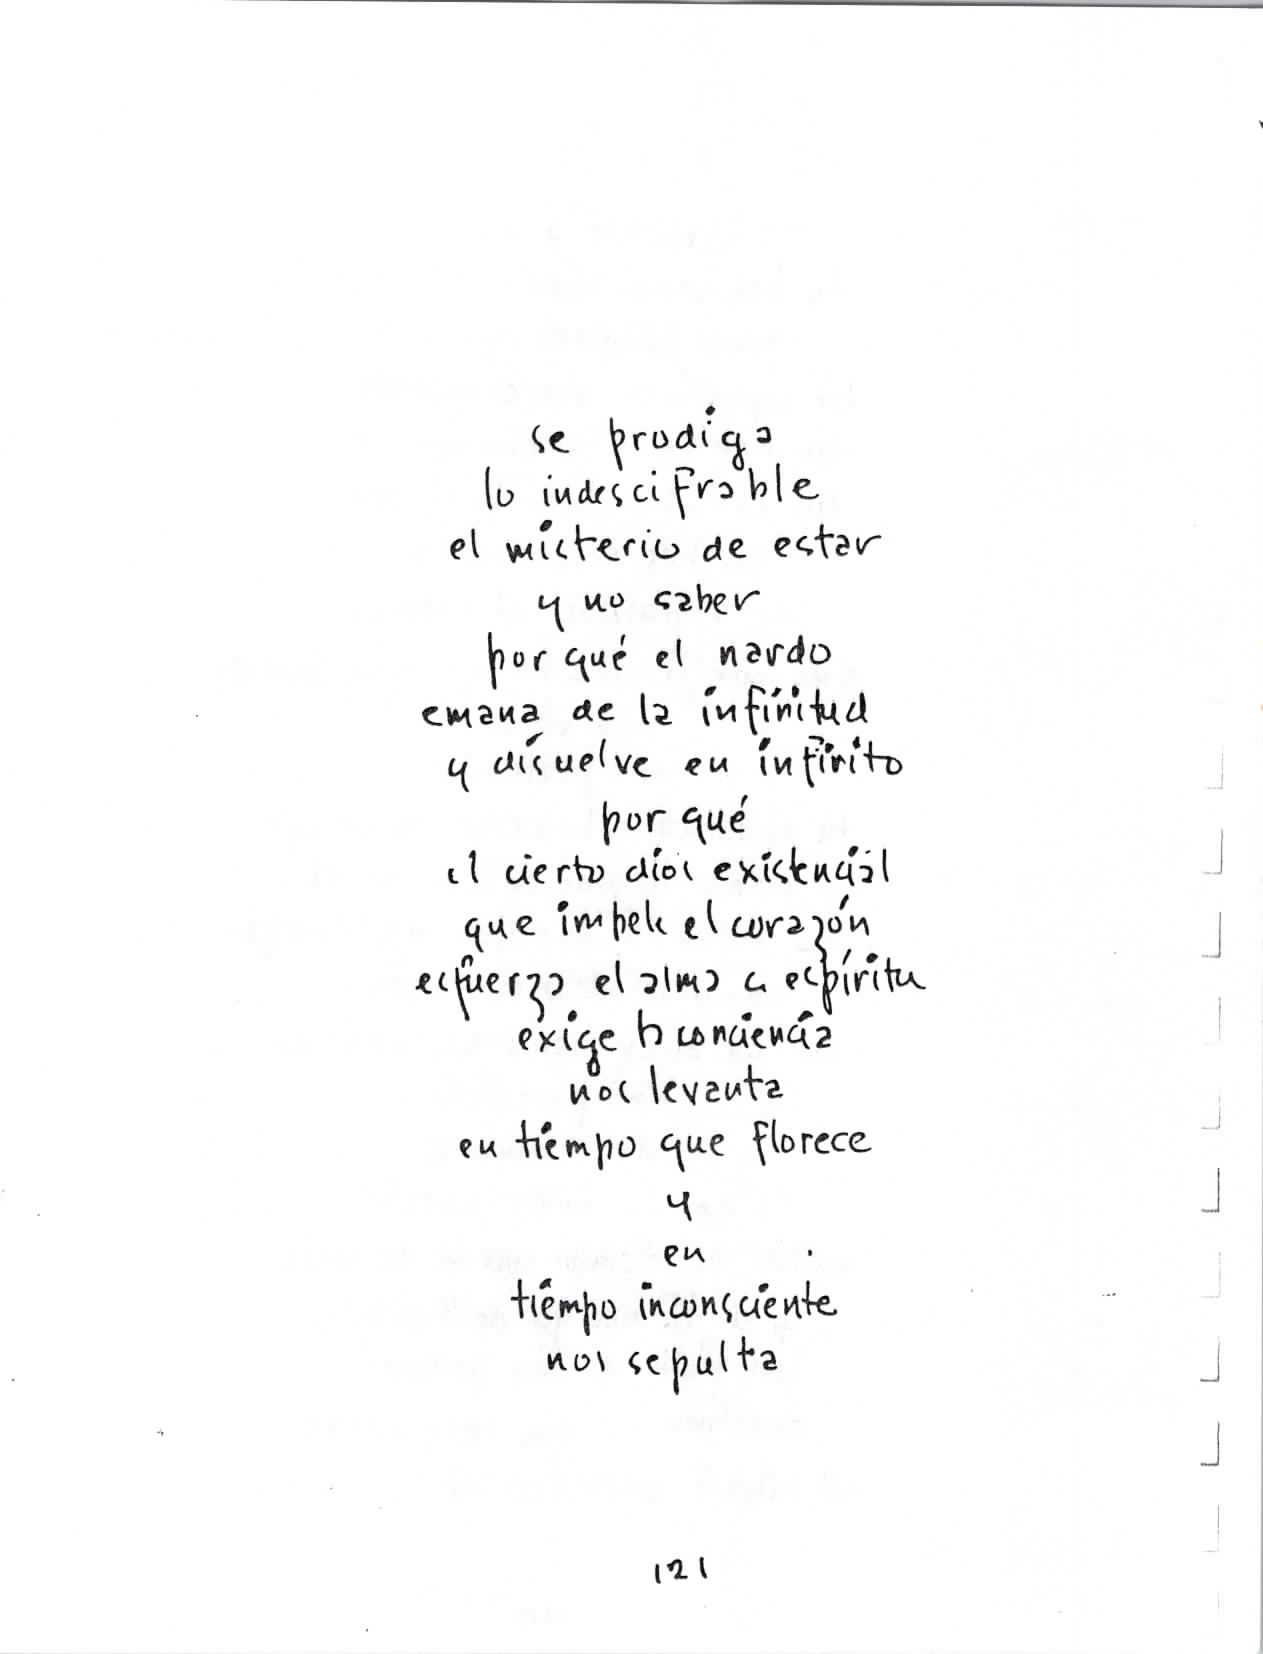 se prodiga
lo indescifrable
el misterio de estar
y no saber
por qué el nardo
emana de la infinitud
y disuelve en infinito
por qué
el cierto dios existencial
que impele el corazón
esfuerza el alma a espíritu
exige la conciencia
nos levanta
en tiempo que florece
y
en
tiempo inconsciente
nos sepulta
121